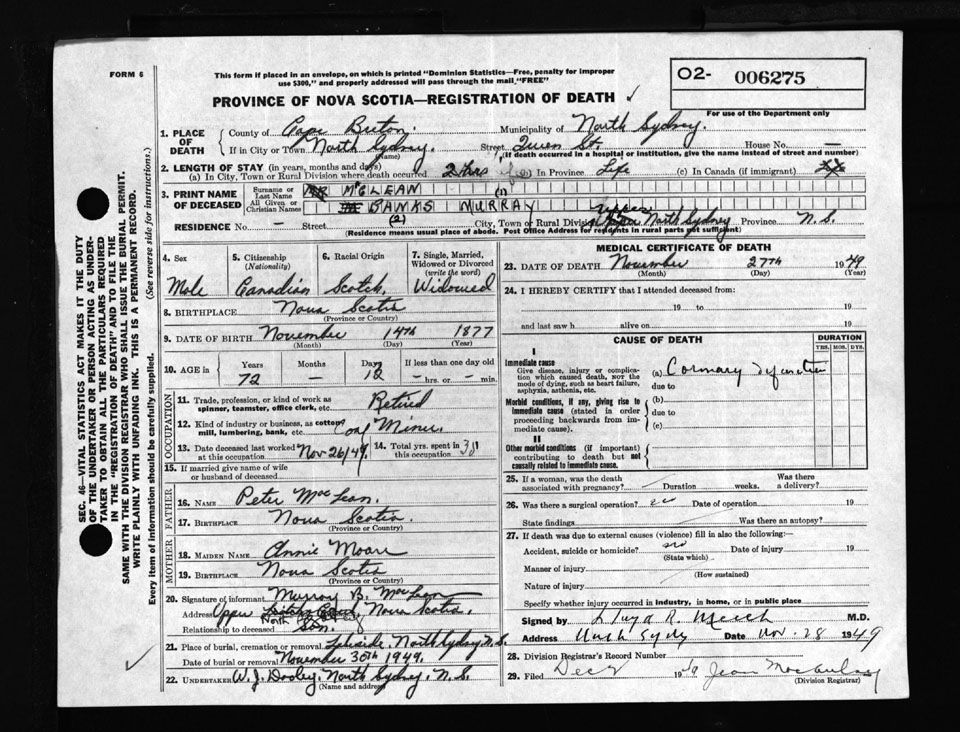 FORM 6
This form if placed in an envelope, on which is printed "Dominion Statistics—Free, penalty for improper use $300," and properly addressed will pass through the mail "FREE"
O2- 006275
PROVINCE OF NOVA SCOTIA—REGISTRATION OF DEATH
For use of the Department only
1. PLACE OF DEATH
County of Cape Breton Municipality of North Sydney.
If in City or Town North Sydney. (Name) Street Queen St. House No. —
(If death occurred in a hospital or institution, give the name instead of street and number)
2. LENGTH OF STAY (in years, months and days)
(a) In City, Town or Rural Division where death occurred 2 Hrs (b) In Province Life (c) In Canada (if immigrant)
3. PRINT NAME OF DECEASED
Surname or Last Name McLEAN (1)
All Given or Christian Names BANKS MURRAY
(2)
RESIDENCE No. — Street City, Town or Rural Division Upper North Sydney Province N.S.
(Residence means usual place of abode. Post Office Address for residents in rural parts not sufficient)
4. Sex Male
5. Citizenship (Nationality) Canadian
6. Racial Origin Scotch
7. Single, Married, Widowed or Divorced (write the word) Widowed
8. BIRTHPLACE Nova Scotia
(Province or Country)
9. DATE OF BIRTH November 14th 1877
(Month) (Day) (Year)
10. AGE in Years 72 Months — Days 12 If less than one day old — hrs. or — min.
OCCUPATION
11. Trade, profession, or kind of work as spinner, teamster, office clerk, etc. Retired
12. Kind of industry or business, as cotton mill, lumbering, bank, etc. Coal Miner.
13. Date deceased last worked at this occupation Nov 26/49.
14. Total yrs. spent in this occupation
15. If married give name of wife or husband of deceased
FATHER
16. Name Peter MacLean.
17. Birthplace Nova Scotia
(Province or Country)
MOTHER
18. Maiden Name Annie Moore
19. Birthplace Nova Scotia
(Province or Country)
20. Signature of informant Murray B. MacLean
Address Upper North Nova Scotia.
Relationship to deceased Son.
21. Place of burial, cremation or removal North Sydney N.S.
Date of burial or removal November 30th 1949.
22. UNDERTAKER W. J. Dooley. North Sydney. N.S.
(Name and address)
MEDICAL CERTIFICATE OF DEATH
23. DATE OF DEATH November 27TH 1949
(Month) (Day) (Year)
24. I HEREBY CERTIFY that I attended deceased from:
19 to 19
and last saw h alive on 19
CAUSE OF DEATH
DURATION
YRS. MOS. DYS.
I
Immediate cause
Give disease, injury or complication which caused death, not the mode of dying, such as heart failure, asphyxia, asthenia, etc.
(a) Coronary
due to
Morbid conditions, if any, giving rise to immediate cause (stated in order proceeding backwards from immediate cause).
(b)
due to
(c)
II
Other morbid conditions (if important) contributing to death but not causally related to immediate cause.
25. If a woman, was the death associated with pregnancy? Duration weeks. Was there a delivery?
26. Was there a surgical operation? no Date of operation 19
State findings Was there an autopsy?
27. If death was due to external causes (violence) fill in also the following:—
Accident, suicide or homicide? no Date of injury 19
(State which)
Manner of injury
(How sustained)
Nature of injury
Specify whether injury occurred in industry, in home, or in public place
Signed by Lloyd R. Meech M.D.
Address North Sydney Date Nov. 28 1949
28. Division Registrar's Record Number
29. Filed Dec 19 49 Jean
(Division Registrar)
SEC. 46—VITAL STATISTICS ACT MAKES IT THE DUTY
OF THE UNDERTAKER OR PERSON ACTING AS UNDERTAKER TO OBTAIN ALL THE PARTICULARS REQUIRED
IN THE "REGISTRATION OF DEATH" AND TO FILE THE
SAME WITH THE DIVISION REGISTRAR WHO SHALL ISSUE THE BURIAL PERMIT.
WRITE PLAINLY WITH UNFADING INK. THIS IS A PERMANENT RECORD.
Every item of information should be carefully supplied. (See reverse side for instructions.)